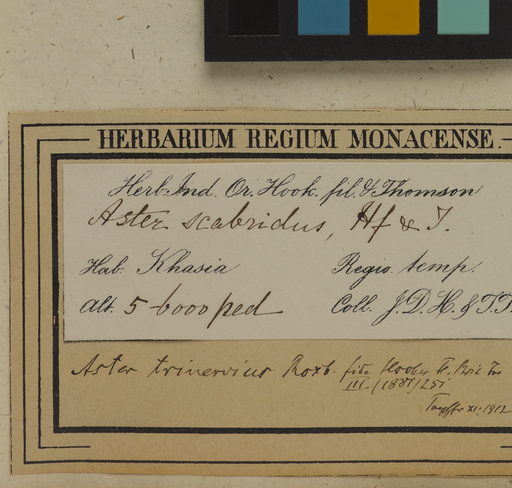 HERBARIUM REGIUM MONACENSE.
Herb. Ind. Or. Hook. fil. & Thomson
Aster scabridus, Hf & T.
Hab. Khasia Regio temp.
Alt. 5-6000 ped Coll. J. D. H. & T. T.
Aster trinervius Roxb. fide Hooker F. Brit. Ind
III. (1881) 251
XI. 1912